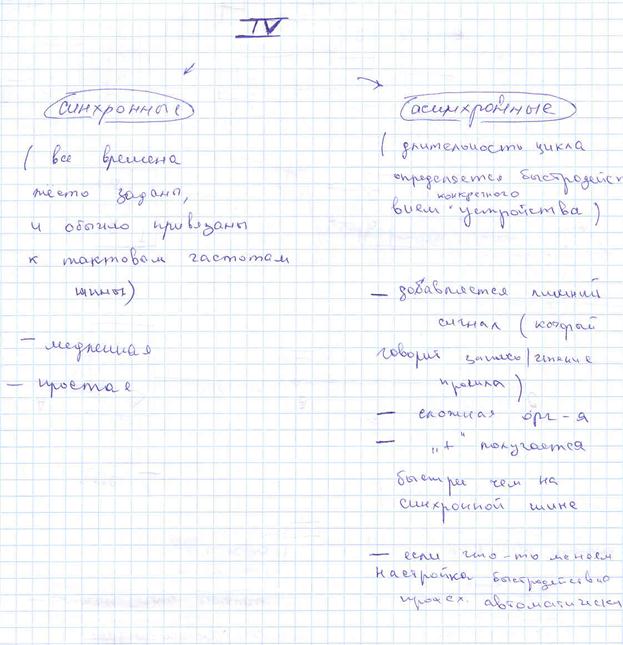 IV
синхронные
( все времена
жесто заданы,
и обычно привязаны
к тактовым частотам
шины)
— медленная
— простая
асинхронные
( длительность цикла
определяется быстродейст
конкретного
вием устройства )
— добавляется лишний
сигнал ( который
говорит запись/чтение
прошла )
— сложная орг-я
— „+“ получается
быстрее чем на
синхронной шине
— если что-то меняем
настройка быстродействия
происх. автоматически